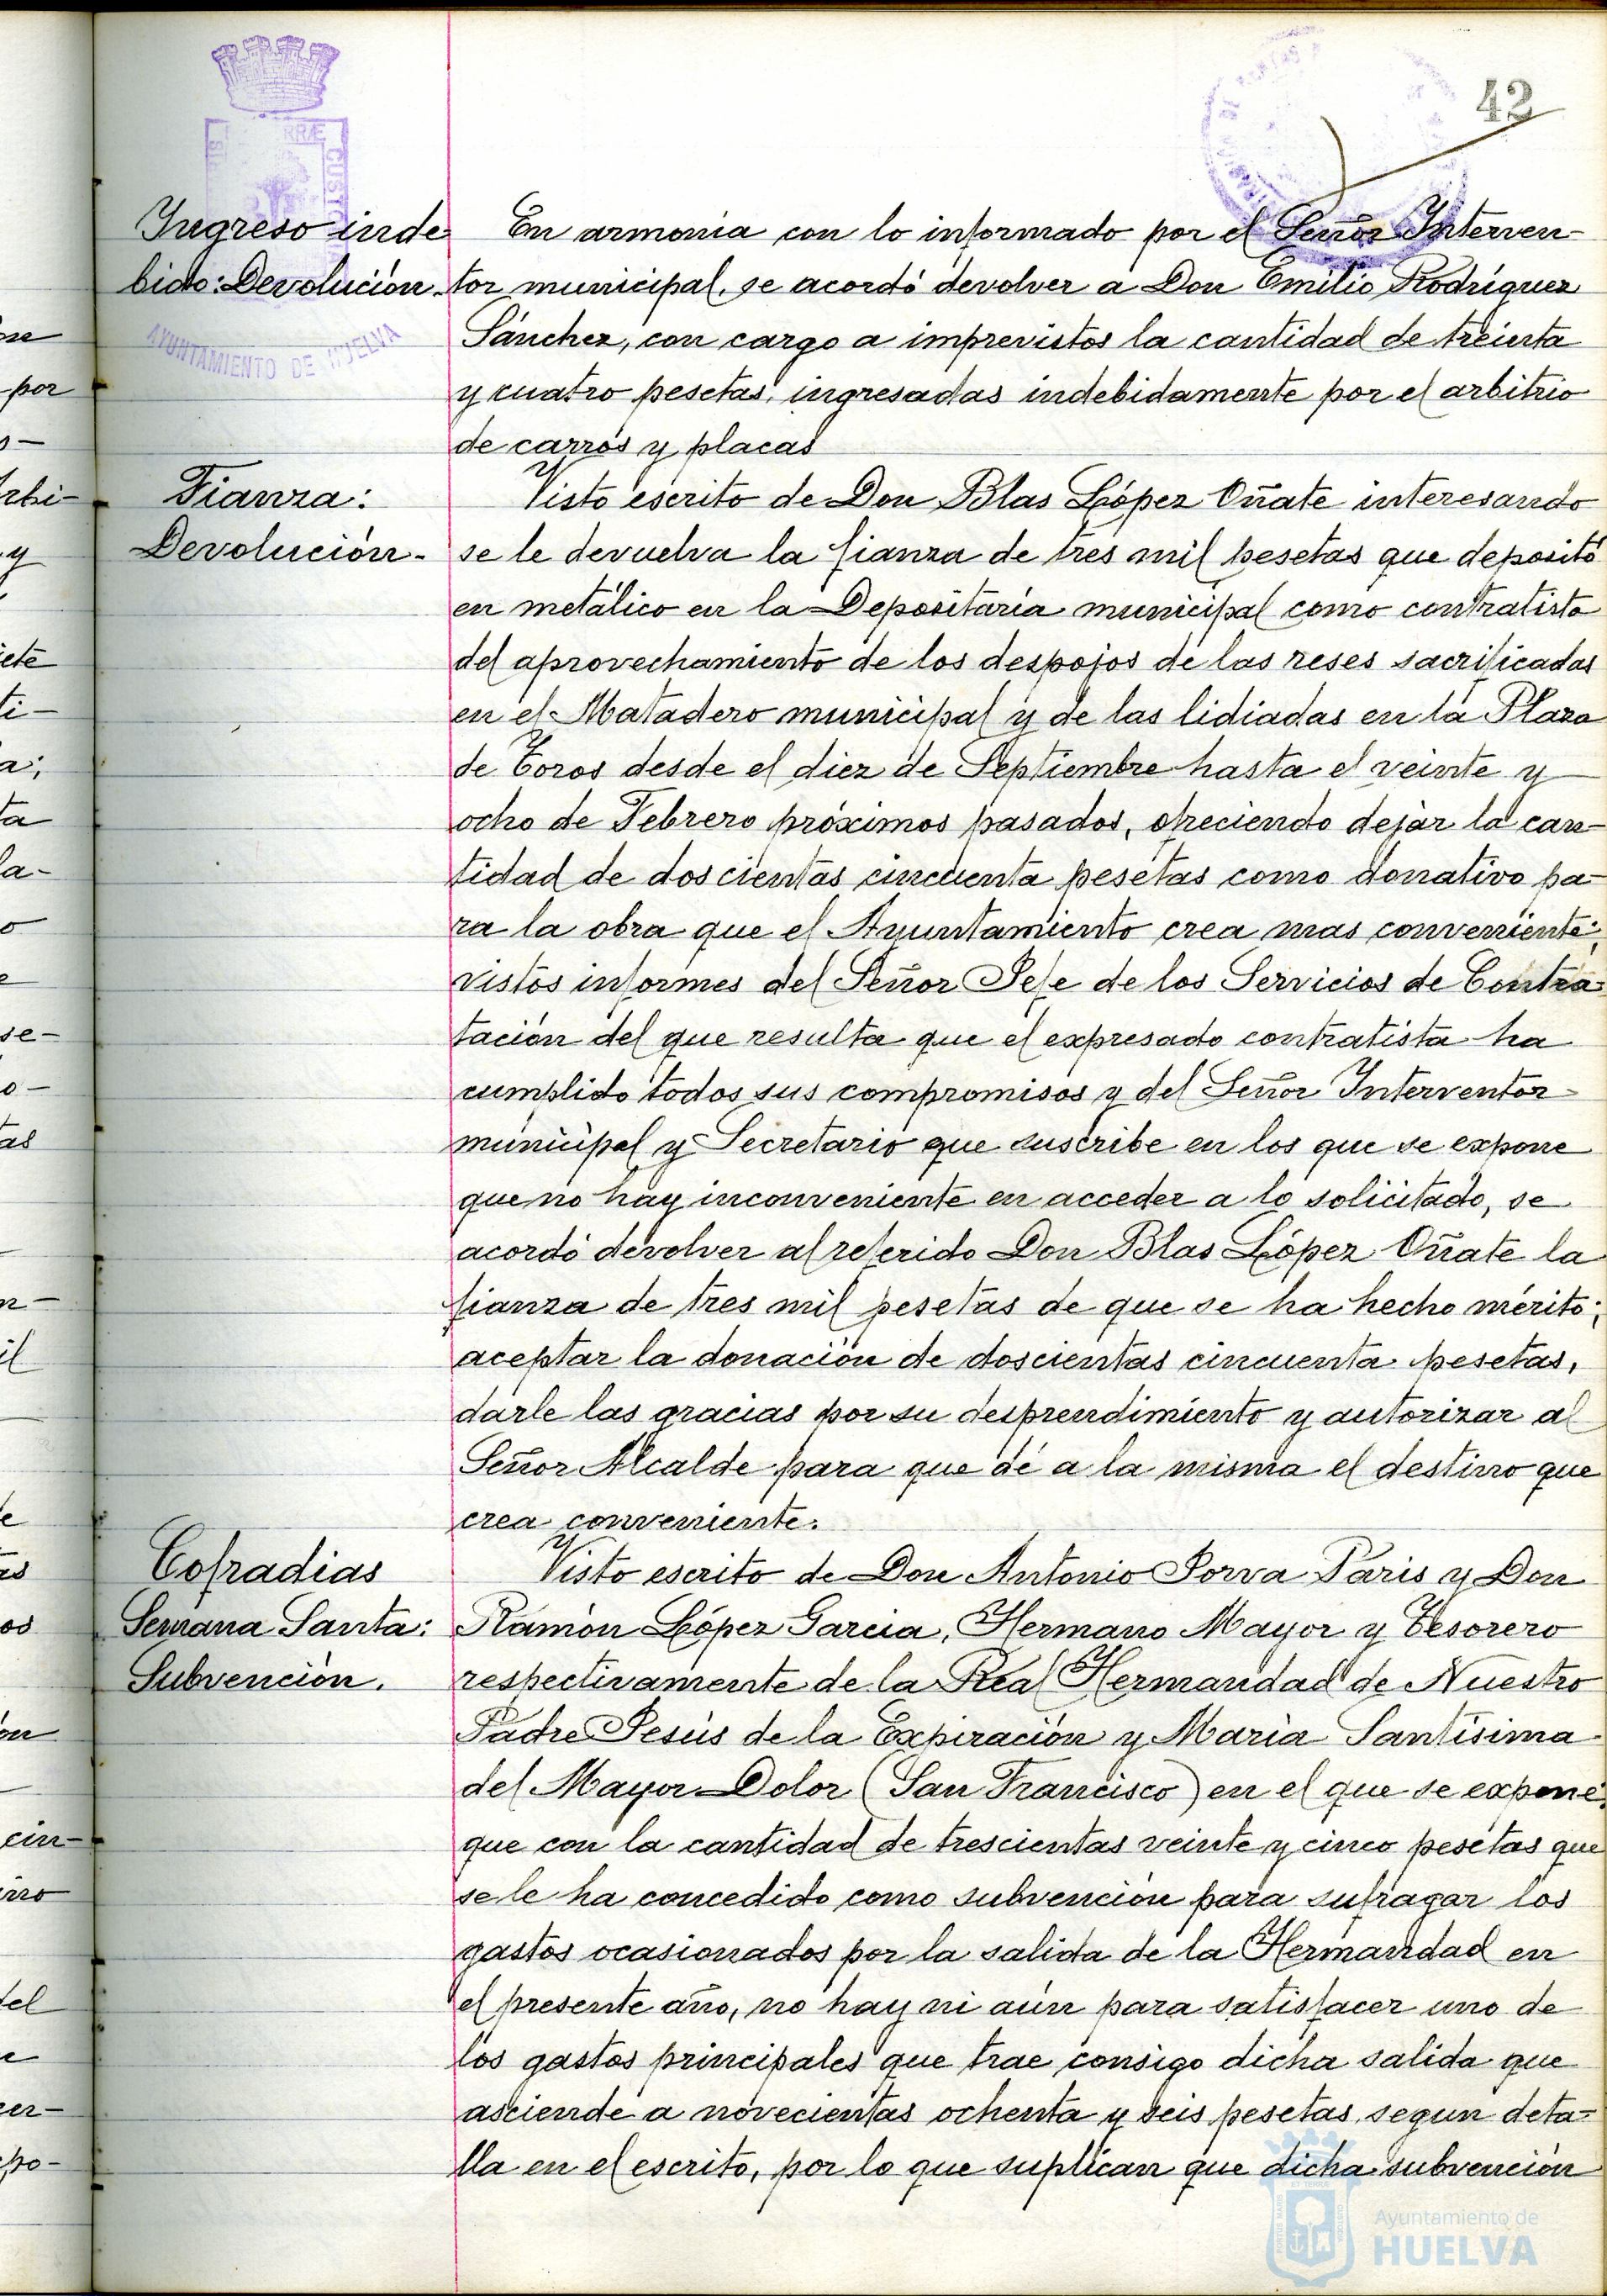 42
Ingreso inde
bido: Devolución.
En armonia con lo informado por el Señor Interven-
tor municipal, se acordó devolver a Don Emilio Rodríguez
Sánchez, con cargo a imprevistos la cantidad de treinta
y cuatro pesetas, ingresadas indebidamente por el arbitrio
de carros y placas
AYUNTAMIENTO DE HUELVA
Fianza:
Devolución.
Visto escrito de Don Blas López Oñate interesando
se le devuelva la fianza de tres mil pesetas que depositó
en metálico en la Depositaría municipal como contratista
del aprovechamiento de los despojos de las reses sacrificadas
en el Matadero municipal y de las lidiadas en la Plaza
de Toros desde el diez de Septiembre hasta el veinte y
ocho de Febrero próximos pasados, ofreciendo dejar la can-
tidad de doscientas cincuenta pesetas como donativo pa-
ra la obra que el Ayuntamiento crea mas conveniente;
vistos informes del Señor Jefe de los Servicios de Contra-
tación del que resulta que el expresado contratista ha
cumplido todos sus compromisos y del Señor Interventor
municipal y Secretario que suscribe en los que se expone
que no hay inconveniente en acceder a lo solicitado, se
acordó devolver al referido Don Blas López Oñate la
fianza de tres mil pesetas de que se ha hecho mérito;
aceptar la donación de doscientas cincuenta pesetas,
darle las gracias por su desprendimiento y autorizar al
Señor Alcalde para que dé a la misma el destino que
crea conveniente.
Cofradias
Semana Santa:
Subvención.
Visto escrito de Don Antonio Jorva Paris y Don
Ramón López Garcia, Hermano Mayor y Tesorero
respectivamente de la Real Hermandad de Nuestro
Padre Jesús de la Expiración y María Santísima
del Mayor Dolor (San Francisco) en el que se expone,
que con la cantidad de trescientas veinte y cinco pesetas que
se le ha concedido como subvención para sufragar los
gastos ocasionados por la salida de la Hermandad en
el presente año, no hay ni aún para satisfacer uno de
los gastos principales que trae consigo dicha salida que
asciende a novecientas ochenta y seis pesetas, segun deta-
lla en el escrito, por lo que suplican que dicha subvención
Ayuntamiento de
HUELVA